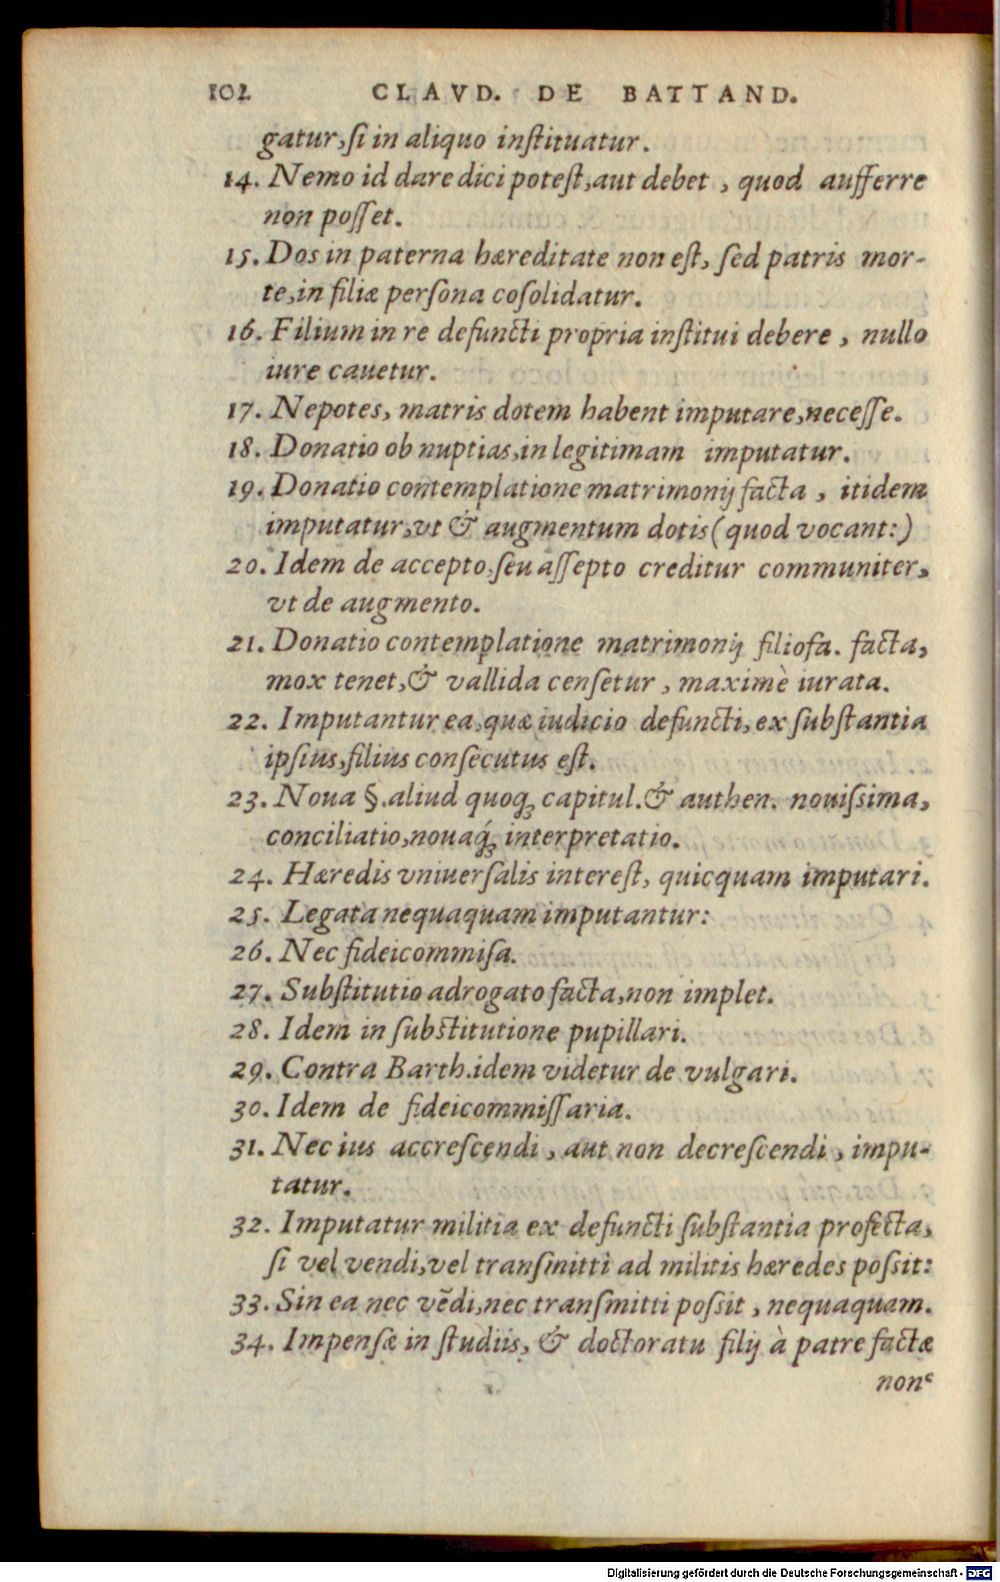 102 CLAVD. DE BATTAND.
gatur, ſi in aliquo inſtituatur.
14. Nemo id dare dici poteſt, aut debet, quod aufferre
non poſſet.
15. Dos in paterna hæreditate non eſt, ſed patris mor-
te, in filiæ perſona coſolidatur.
16. Filium in re defuncti propria inſtitui debere, nullo
iure cauetur.
17. Nepotes, matris dotem habent imputare, neceſſe.
18. Donatio ob nuptias, in legitimam imputatur.
19. Donatio contemplatione matrimonij facta, itidem
imputatur, vt & augmentum dotis (quod vocant:)
20. Idem de accepto, ſeu aſſepto creditur communiter,
vt de augmento.
21. Donatio contemplatione matrimonij filiofa. facta,
mox tenet, & vallida cenſetur, maximè iurata.
22. Imputantur ea, quæ iudicio defuncti, ex ſubſtantia
ipſius, filius conſecutus eſt.
23. Noua §. aliud quoqꝫ capitul. & authen. nouiſsima,
conciliatio, nouaqꝫ́ interpretatio.
24. Hæredis vniuerſalis intereſt, quicquam imputari.
25. Legata nequaquam imputantur:
26. Nec fideicommiſa.
27. Subſtitutio adrogato facta, non implet.
28. Idem in ſubſtitutione pupillari.
29. Contra Barth. idem videtur de vulgari.
30. Idem de fideicommiſſaria.
31. Nec ius accreſcendi, aut non decreſcendi, impu-
tatur.
32. Imputatur militia ex defuncti ſubſtantia profecta,
ſi vel vendi, vel tranſmitti ad militis hæredes poſsit:
33. Sin ea nec vẽdi, nec tranſmitti poſsit, nequaquam.
34. Impenſæ in ſtudiis, & doctoratu filij à patre factæ
non
Digitalisierung gefördert durch die Deutsche Forschungsgemeinschaft - DFG